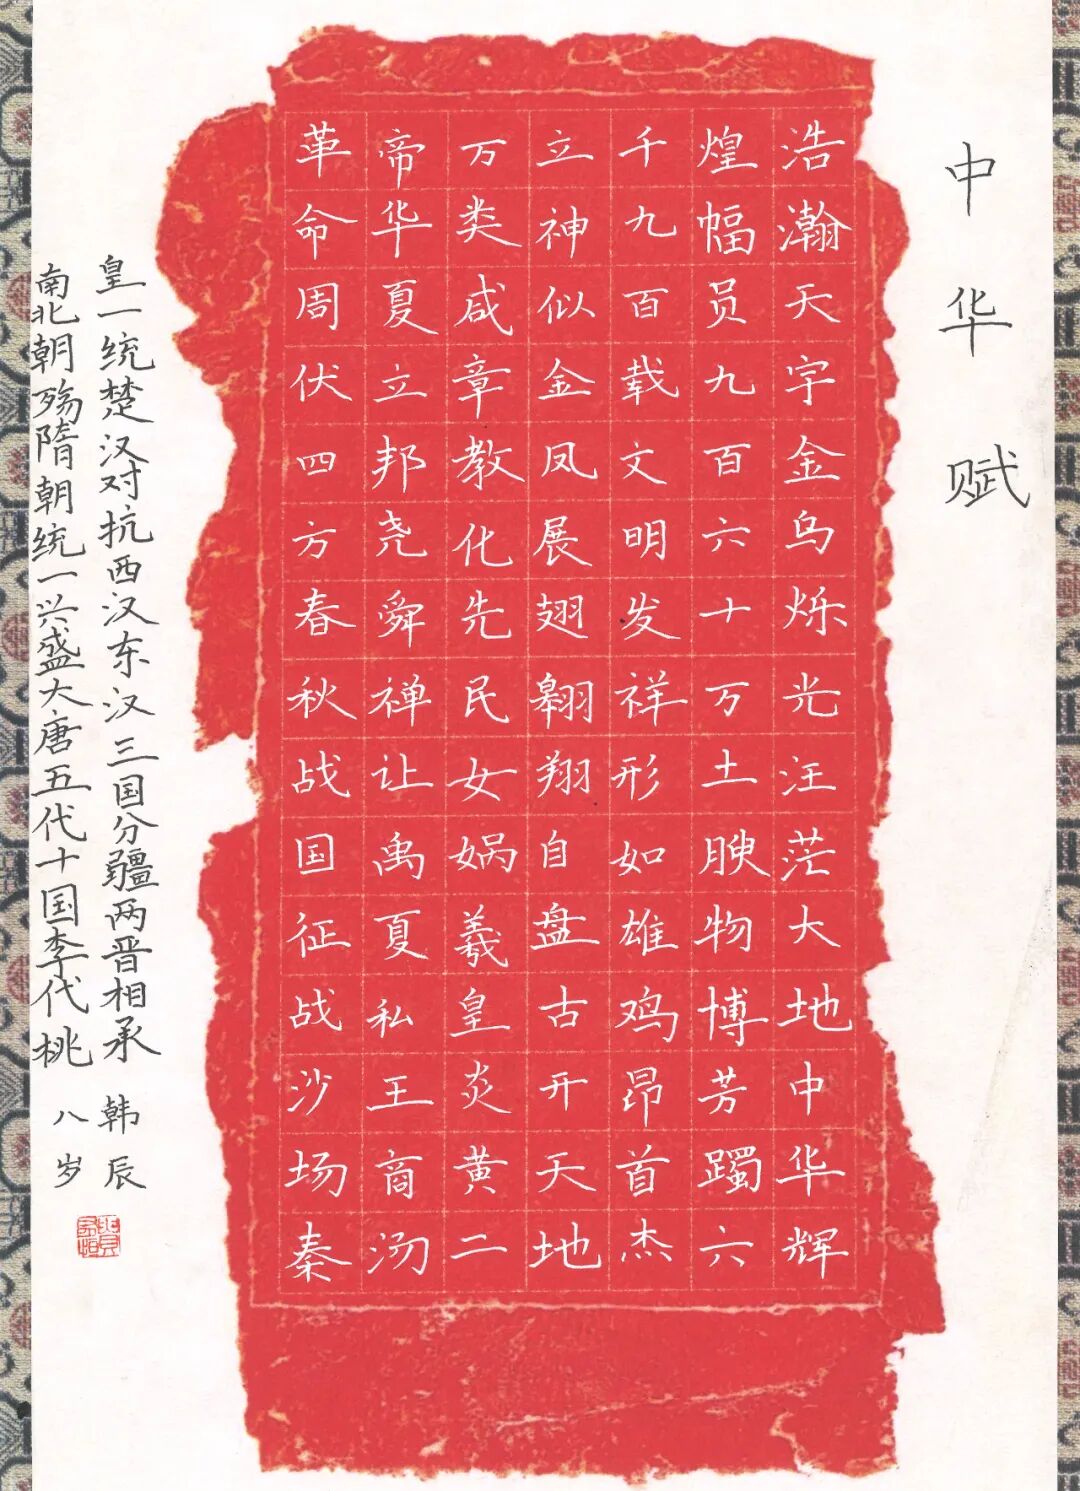 中华赋
浩瀚天宇金乌烁光汪茫大地中华辉
煌幅员九百六十万土腴物博芳躅六
千九百载文明发祥形如雄鸡昂首杰
立神似金凤展翅翱翔自盘古开天地
万类咸章教化先民女娲羲皇炎黄二
帝华夏立邦尧舜禅让禹夏私王商汤
革命周伏四方春秋战国征战沙场秦
皇一统楚汉对抗西汉东汉三国分疆两晋相承
南北朝殇隋朝统一兴盛大唐五代十国李代桃
韩辰
八岁